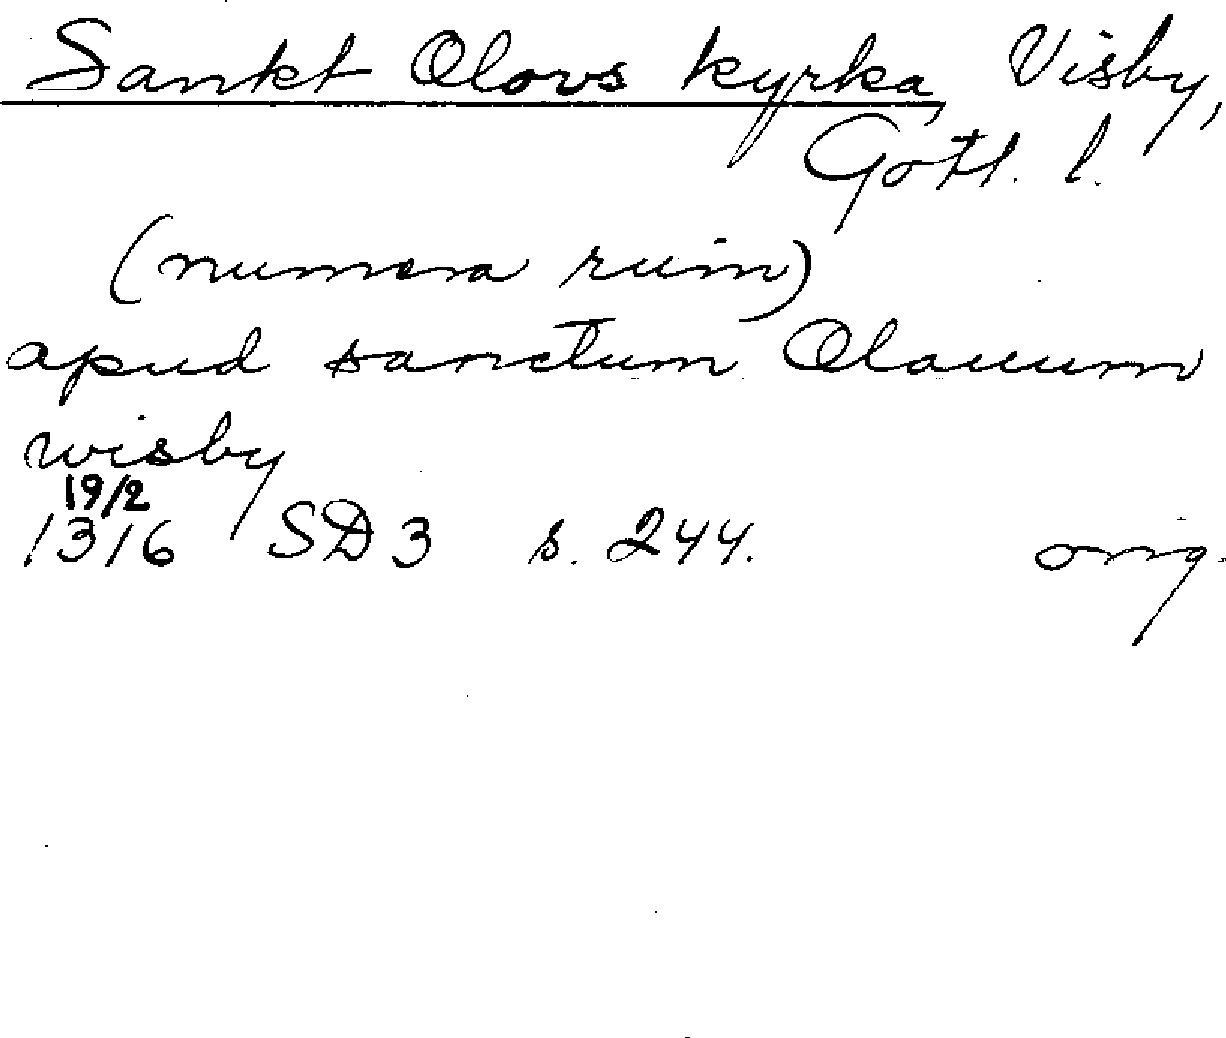 Sankt Olovs kyrka, Visby,
Gotl. l.
(numera ruin)
apud sanctum Olauum
wisby
19/2
1316 SD 3 s. 244. orig.